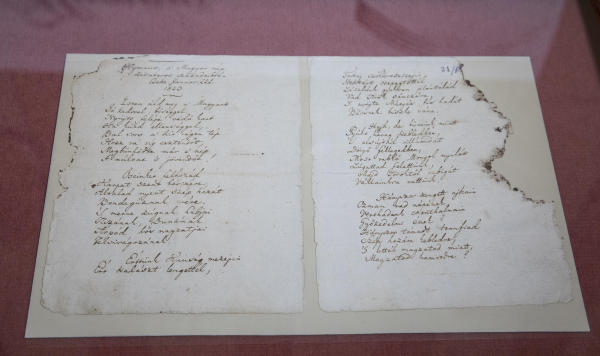 Hymnus, a' Magyar nép
zivataros századaiból.
Cseke, Januar. 22d.
1823
Isten áldd meg a' Magyart
Jó kedvvel, bőséggel,
Nyújts feléje védő kart
Ha küzd ellenséggel;
Bal sors a' kit régen tép
Hozz rá víg esztendőt,
Megbűnhődte már e' nép
A' multat 's jövendőt!
Őseinket felhozád
Kárpát szent bérczére,
Általad nyert szép hazát
Bendegúznak vére.
'S merre zúgnak habjai
Tiszának, Dunának,
Árpád hős magzatjai
Felvirágozának.
Értünk Kunság mezején
Ért kalászt lengettél,
Tokaj szőlővesszein
Nektárt csepegtettél.
Zászlónk gyakran plántálád
Vad török sánczára,
'S nyögte Mátyás bús hadát
Bécsnek büszke vára.
Hajh, de bűneink miatt
Gyúlt harag kebledben,
'S elsújtád villámidat
Dörgő fellegedben,
Most rabló Mongol nyilát
Zúgattad felettünk,
Majd töröktől rabigát
Vállainkra vettünk.
Hányszor zengett ajkain
Ozman vad népének
Vert hadunk csonthalmain
Győzedelmi ének!
Hányszor támadt tenfiad
Szép hazám kebledre,
'S lettél magzatod miatt
Magzatod hamvvedre!